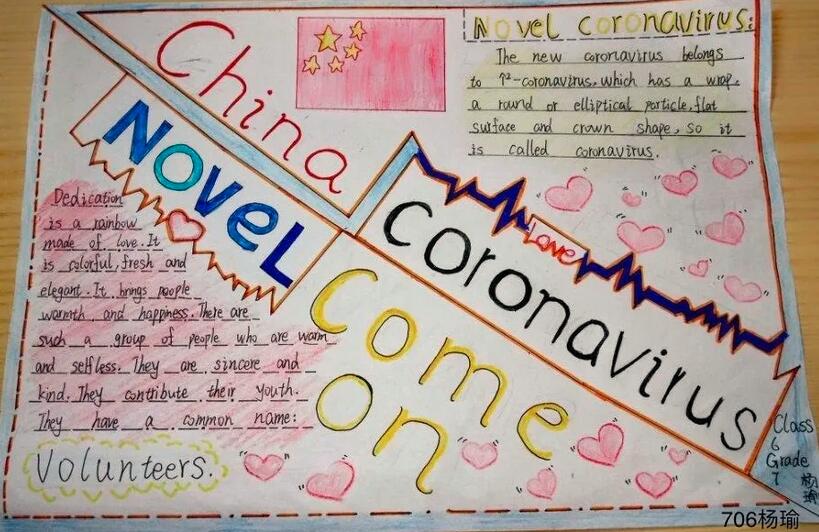 China
Novel coronavirus:
The new coronavirus belongs
to β-coronavirus, which has a wrap.
a round or elliptical particle, flat
surface and crown shape, so it
is called coronavirus.
NOVeL
Love
coronavirus
Dedication
is a rainbow
made of love. It
is colorful, fresh and
elegant. It brings people
warmth and happiness. There are
such a group of people who are warm
and selfless. They are sincere and
kind. They contribute their youth.
They have a common name:
Volunteers.
Come
On
Class
6
Grade
7
杨
瑜
706杨瑜